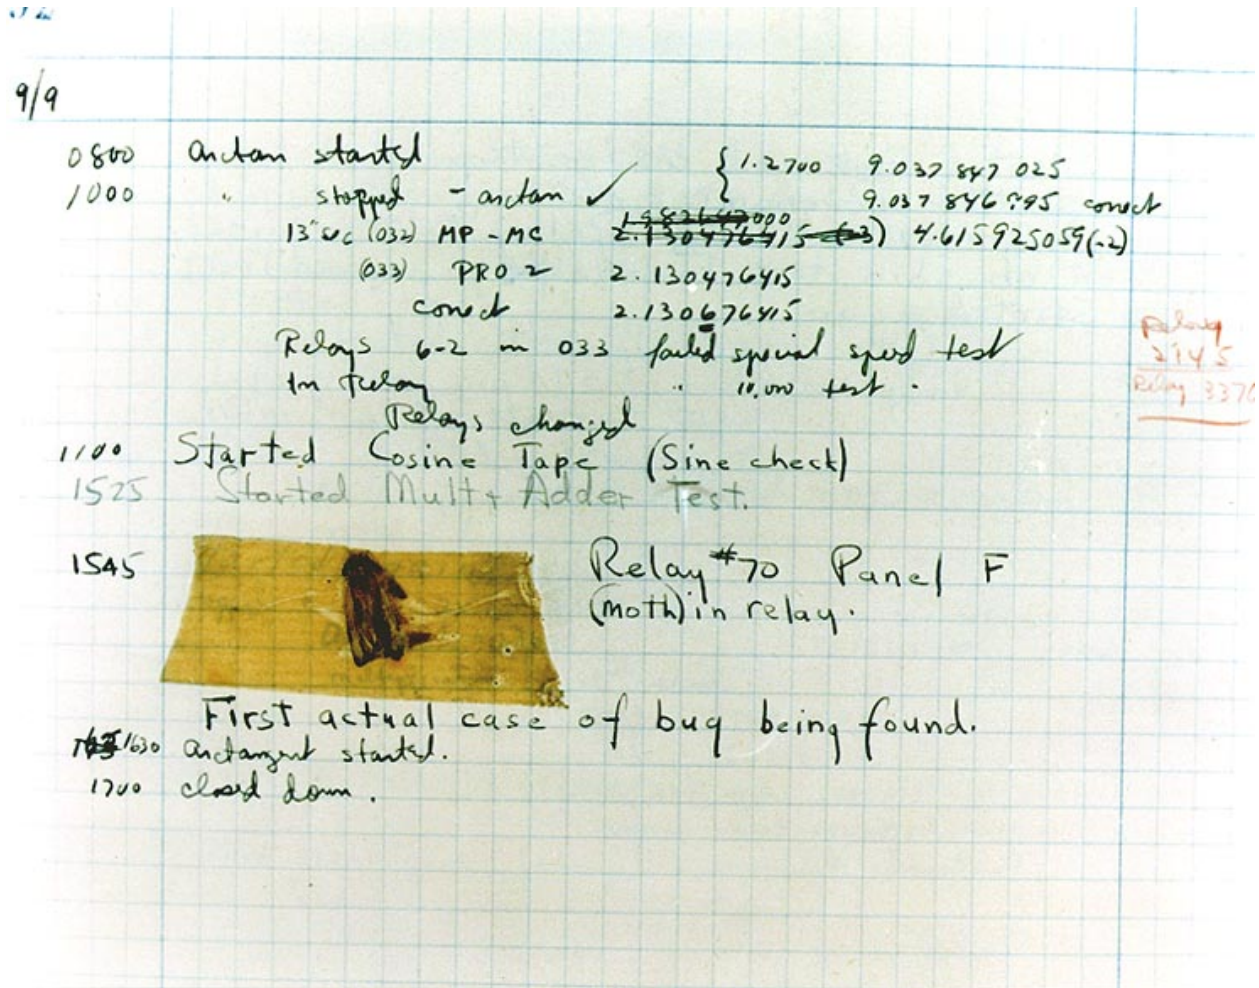 9/9
0800 arctan started { 1.2700 9.037 847 025
1000 " stopped - arctan ✓ 9.037 846 995 correct
13" sec (032) MP - MC 2.130476415 (-3) 4.615925059(-2)
(033) PRO 2 2.130476415
correct 2.130676415
Relays 6-2 in 033 failed special speed test
In Relay " 10,000 test .
Relay
2145
Relay 3370
Relays changed
1100 Started Cosine Tape (Sine check)
1525 Started Mult + Adder Test.
1545 Relay #70 Panel F
(moth) in relay.
First actual case of bug being found.
1630 arctangent started.
1700 closed down .